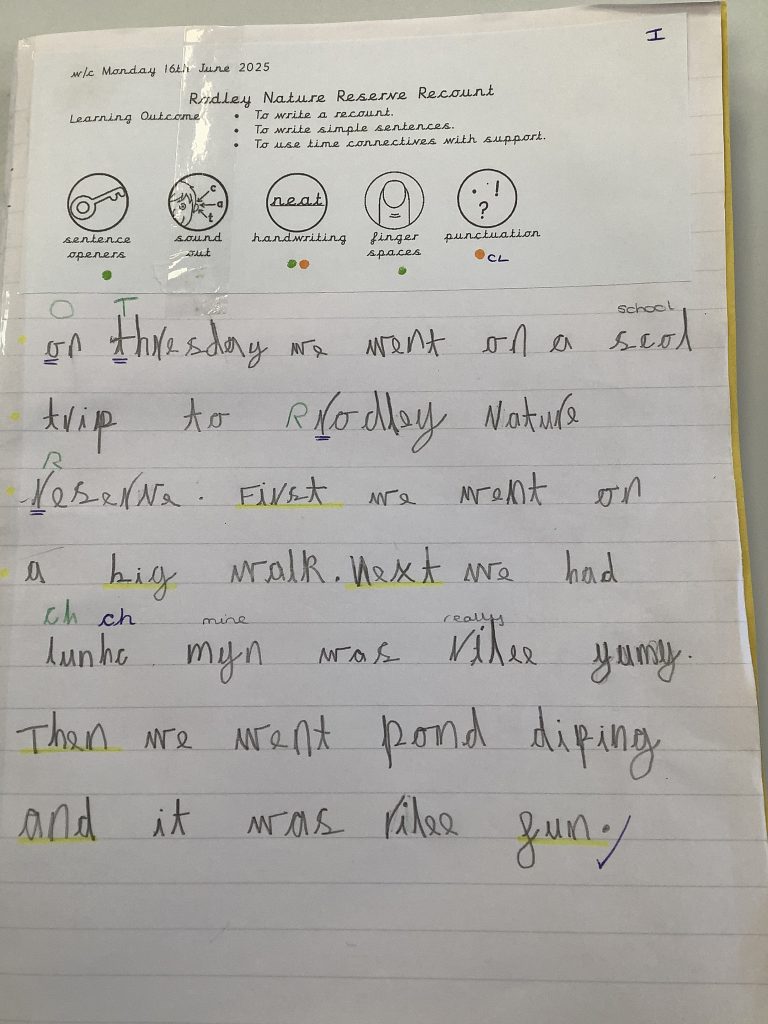 I
w/c Monday 16th June 2025
Rodley Nature Reserve Recount
Learning Outcome • To write a recount.
• To write simple sentences.
• To use time connectives with support.
c
a
t
neat
. , !
?
sentence openers
sound out
handwriting
finger spaces
punctuation
CL
O T school
on thresday we went on a scol
trip to R Nodley Nature
R
reserve. First we went on
a big walk. Next we had
ch ch mine really
lunhc myn was rilee yumy.
Then we went pond diping
and it was rilee fun.